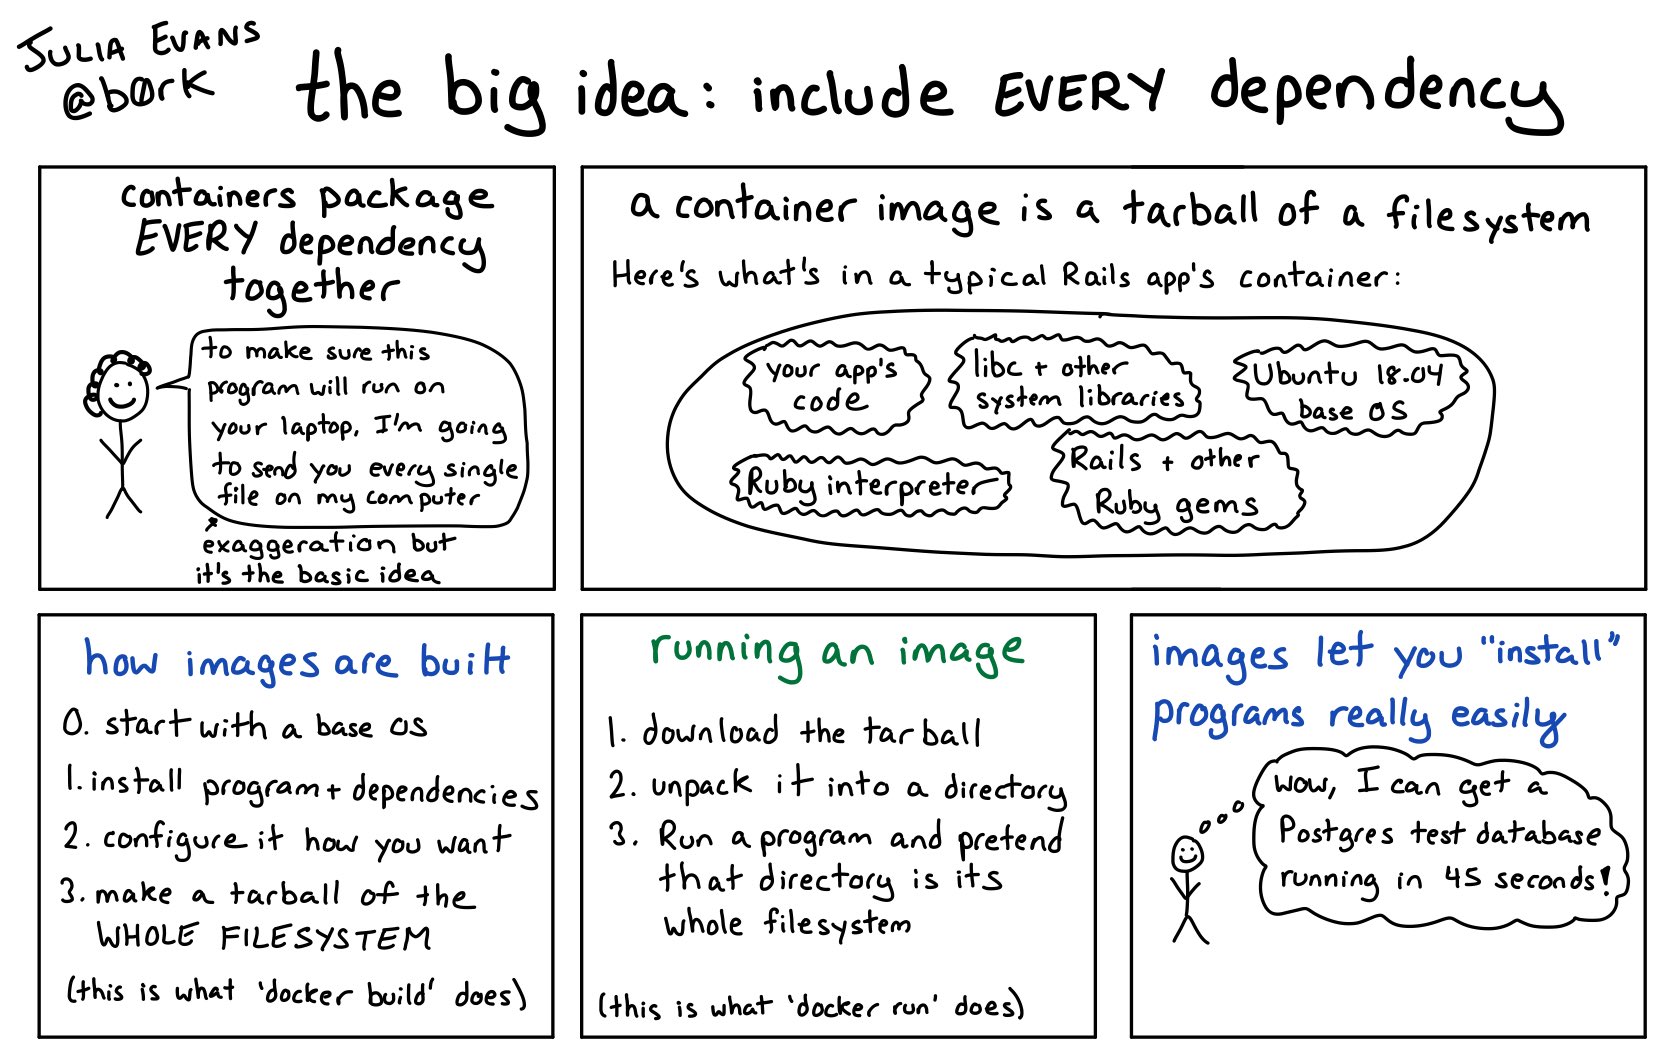 JULIA EVANS
@b0rk
the big idea: include EVERY dependency
containers package
EVERY dependency
together
to make sure this
program will run on
your laptop, I'm going
to send you every single
file on my computer
exaggeration but
it's the basic idea
a container image is a tarball of a filesystem
Here's what's in a typical Rails app's container:
your app's
code
libc + other
system libraries
Ubuntu 18.04
base OS
Ruby interpreter
Rails + other
Ruby gems
how images are built
0. start with a base OS
1. install program + dependencies
2. configure it how you want
3. make a tarball of the
WHOLE FILESYSTEM
(this is what 'docker build' does)
running an image
1. download the tarball
2. unpack it into a directory
3. Run a program and pretend
that directory is its
whole filesystem
(this is what 'docker run' does)
images let you "install"
programs really easily
wow, I can get a
Postgres test database
running in 45 seconds!